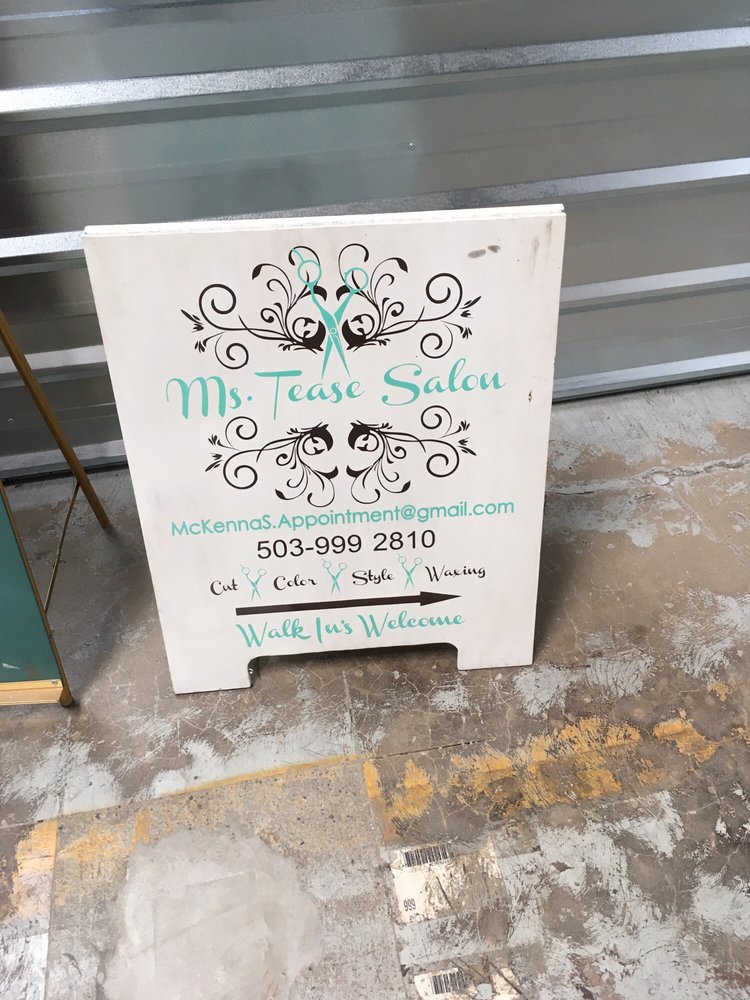 Ms. Tease Salon
McKennaS.Appointment@gmail.com
503-999 2810
Cut Color Style Waxing
Walk In's Welcome
999